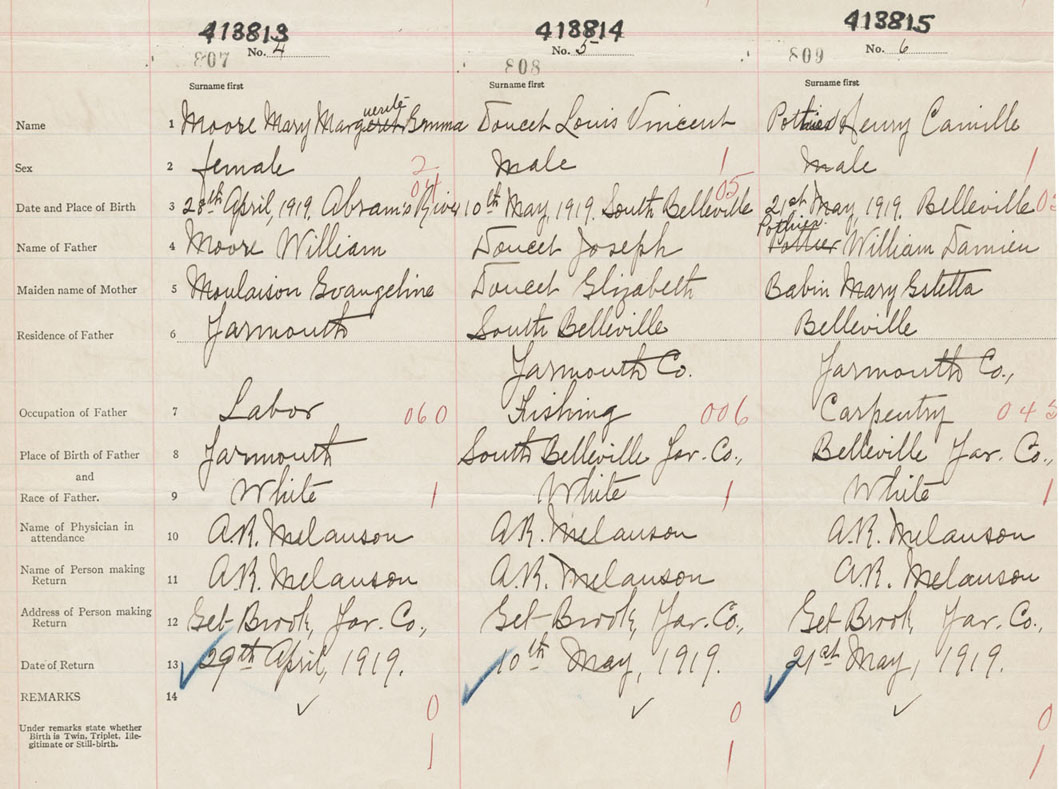 413813 413814 413815
807 No. 4 808 No. 5 809 No. 6
Surname first Surname first Surname first
Name 1 Moore Mary Marguerite Emma Doucet Louis Vincent Pothier Henry Camille
Sex 2 female 2 Male 1 Male 1
04 05
Date and Place of Birth 3 28th April, 1919. Abram's River 10th May, 1919. South Belleville 21st May, 1919. Belleville
Pothier
Name of Father 4 Moore William Doucet Joseph Pottier William Damien
Maiden name of Mother 5 Moulaison Evangeline Doucet Elizabeth Babin Mary Estetta
Residence of Father 6 Yarmouth South Belleville Belleville
Yarmouth Co. Yarmouth Co.,
Occupation of Father 7 Labor 060 Fishing 006 Carpentry 045
Place of Birth of Father 8 Yarmouth South Belleville Yar. Co., Belleville Yar. Co.,
and
Race of Father. 9 White 1 White 1 White 1
Name of Physician in
attendance 10 A.R. Melanson A.R. Melanson A.R. Melanson
Name of Person making
Return 11 A.R. Melanson A.R. Melanson A.R. Melanson
Address of Person making
Return 12 Eel Brook, Yar. Co., Eel Brook, Yar. Co., Eel Brook, Yar. Co.,
Date of Return 13 29th April, 1919. 10th May, 1919. 21st May, 1919.
REMARKS 14
0 0 0
Under remarks state whether
Birth is Twin, Triplet, Ille-
gitimate or Still-birth.
1 1 1